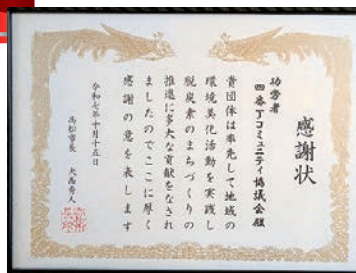 感謝状
功労者
四番丁コミュニティ協議会殿
貴団体は率先して地域の
環境美化活動を実践し
脱炭素のまちづくりの
推進に多大な貢献をなされ
ましたのでここに厚く
感謝の意を表します
令和七年十月十五日
高松市長 大西秀人